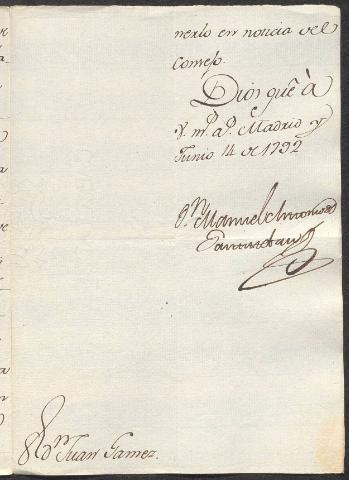 nerlo en noticia del
Consejo.
Dios gue à
V. m.ˢ a.ˢ Madrid y
Junio 14 de 1792
D.ⁿ Manuel Antonio de
Santisteban
S.ʳ D.ⁿ Juan Gamez.